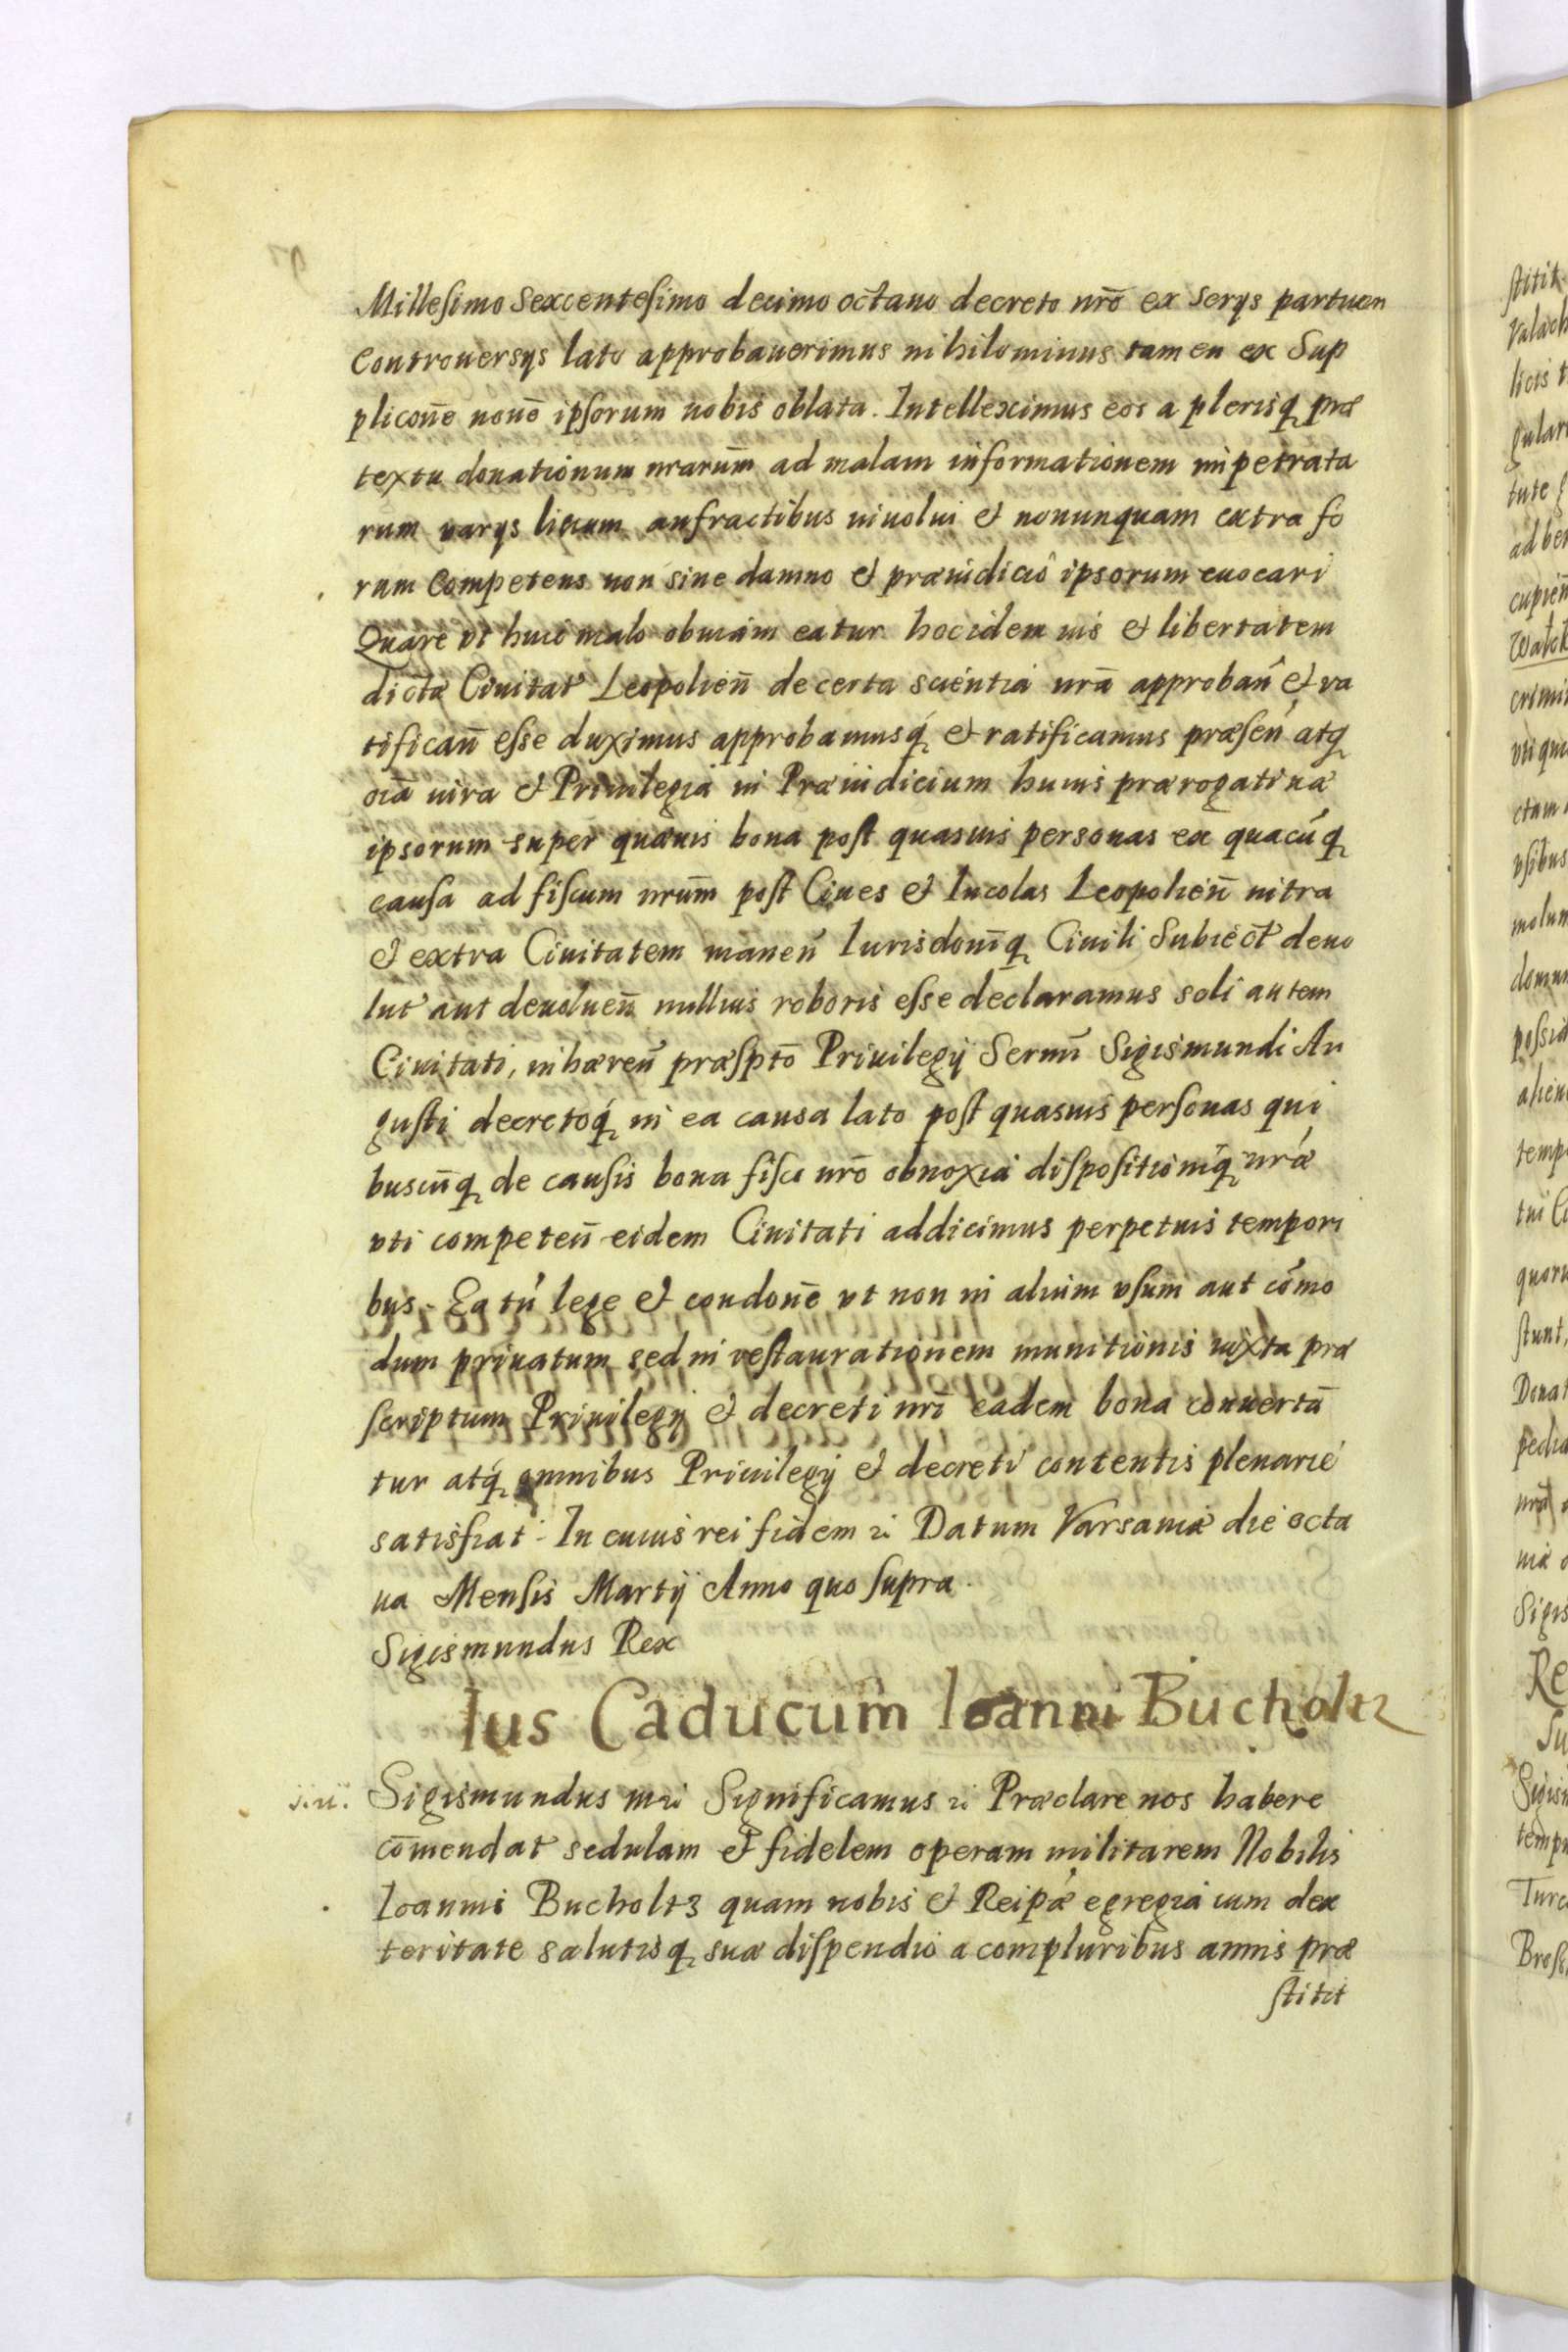 Millesimo Sexcentesimo decimo octauo decreto nrō ex serys partium
Controuersys lato approbauerimus nihilominus tamen ex Sup
plicoñe nouē ipsorum nobis oblata. Intelleximus eos a plerisq₃ præ
textu donationum nrarum̄ ad malam informationem impetrata
rum varys litium anfractibus inuolui et nonunquam extra fo
rum Competens non sine damno et præiudicio ipsorum euocari
Quare vt huic malo obuiam eatur hoc idem ius et libertatem
dictæ Ciuitat Leopolieñ de certa scientia nrā approbañ et ra
tificañ esse duximus approbamusq₃ et ratificamus præseñ atq₃
oīa iura et Priuilegia in Præiudicium huius prærogatiuæ
ipsorum super quæuis bona post quasuis personas ex quacūq₃
causa ad fiscum nrum̄ post Ciues et Incolas Leopolieñ intra
et extra Ciuitatem maneñ Iurisdoniq₃ Ciuili Subiect deuo
lut aut deuolueñ nullius roboris esse declaramus soli autem
Ciuitati, inhæreñ præsptō Priuilegÿ Sermi Sigismundi Au
gusti decretoq₃ in ea causa lato post quasuis personas qui
buscūq₃ de causis bona fisco nrō obnoxia dispositioniq₃ nræ
vti competeñ eidem Ciuitati addicimus perpetuis tempori
bus. Ea tn̄ lege et condoñe vt non in alium vsum aut cōmo
dum priuatum sed in restaurationem munitionis iuxta præ
scriptum Priuilegÿ et decreti nrī eadem bona conuertā
tur atq₃ omnibus Priuilegÿ et decreti contentis plenarie
satisfiat. In cuius rei fidem ꝛc Datum Varsauiæ die octa
ua Mensis Martÿ Anno quo supra.
Sigismundus Rex
Ius Caducum Ioanni Bucholtz
Sigismundus III ꝛc Significamus ꝛc Præclare nos habere
cōmendat sedulam et fidelem operam militarem Nobilis
Ioanni Bucholtz quam nobis et Reipæ egregia cum dex
teritate salutisq₃ suæ dispendio a compluribus annis præ
stitit